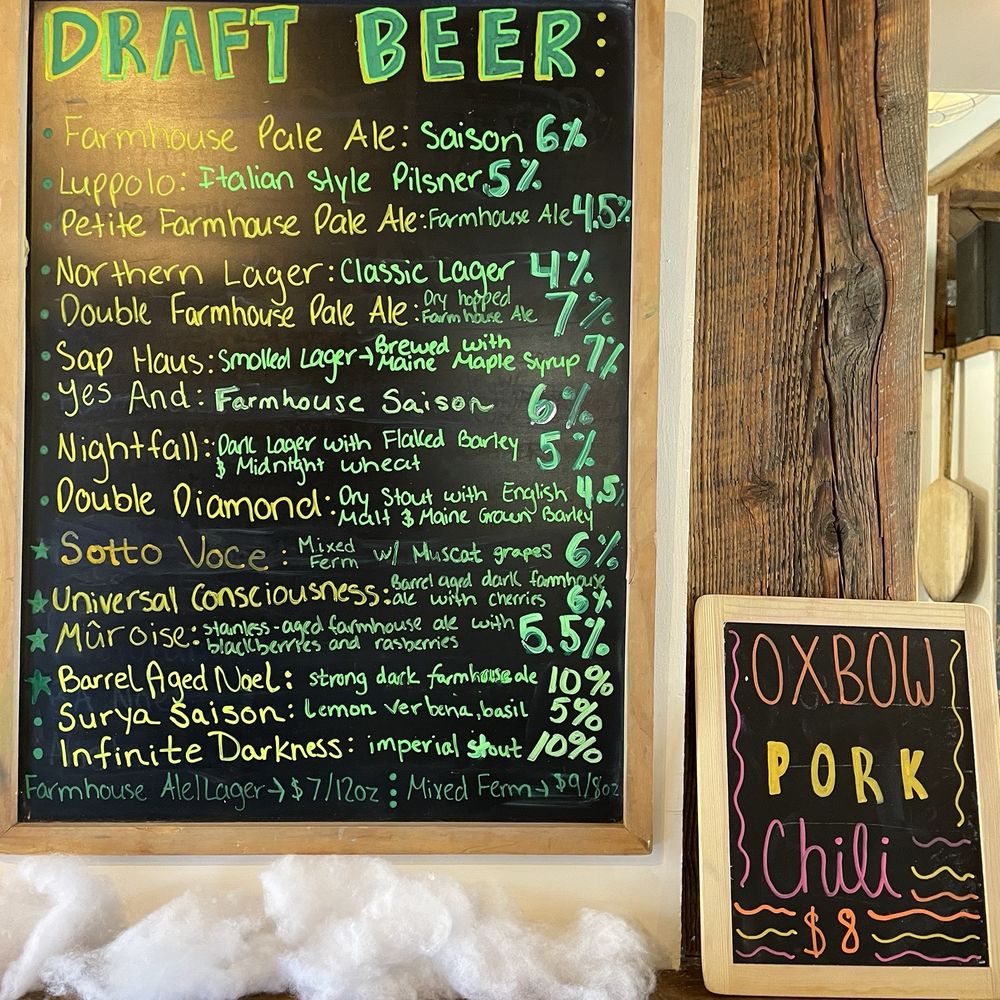 DRAFT BEER:
• Farmhouse Pale Ale: Saison 6%
• Luppolo: Italian style Pilsner 5%
• Petite Farmhouse Pale Ale: Farmhouse Ale 4.5%
• Northern Lager: Classic Lager 4%
• Double Farmhouse Pale Ale: Dry hopped
Farmhouse Ale 7%
• Sap Haus: Smoked Lager → Brewed with
Maine Maple Syrup 7%
• Yes And: Farmhouse Saison 6%
• Nightfall: Dark Lager with Flaked Barley
& Midnight wheat 5%
• Double Diamond: Dry Stout with English
Malt & Maine Grown Barley 4.5%
★ Sotto Voce: Mixed
Ferm w/ Muscat grapes 6%
★ Universal Consciousness: Barrel aged dark farmhouse
ale with cherries 6%
★ Mûroise: stainless-aged farmhouse ale with
blackberries and rasberries 5.5%
★ Barrel Aged Noel: strong dark farmhouse ale 10%
• Surya Saison: Lemon verbena, basil 5%
• Infinite Darkness: imperial stout 10%
Farmhouse Ale|Lager → $7/12oz ⋮ Mixed Ferm → $9/8oz
OXBOW
PORK
Chili
$8